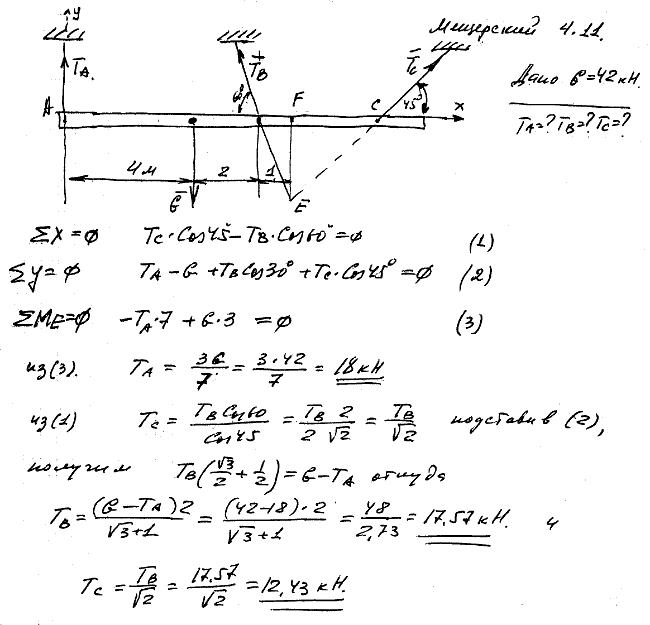 Мещерский 4.11.
y
T̄A.
T̄B
T̄c
Дано G=42кН.
TA=? TB=? Tc=?
A
60°
F
C
45°
x
4м
2
1
Ḡ
E
ΣX=0 Tc·Cos45°−TB·Cos60°=0 (1)
Σy=0 TA−G+TBCos30°+Tc·Cos45°=0 (2)
ΣME=0 −TA·7+G·3=0 (3)
из(3). TA = 3G/7 = 3·42/7 = 18кН
из(1) Tc = TB Cos60/Cos45 = TB 2/2√2 = TB/√2 подставив (2),
получим TB(√3/2+1/2)=G−TA откуда
TB=(G−TA)2/√3+1 = (42−18)·2/√3+1 = 48/2,73 = 17.57кН. и
Tc = TB/√2 = 17.57/√2 = 12,43 кН.